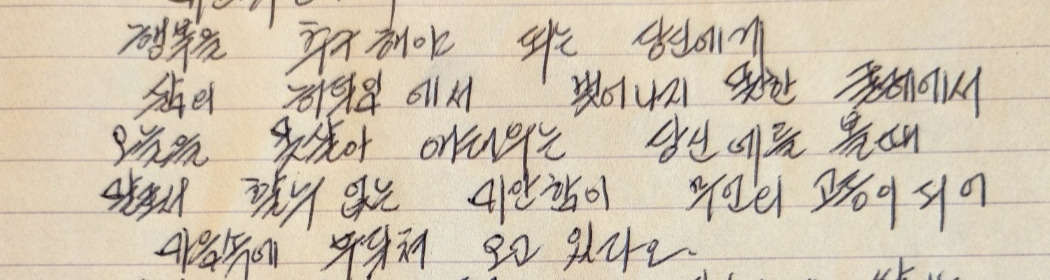 행복을 추구해야 되는 당신에게
삶의 허덕임에서 벗어나지 못한 굴레에서
오늘을 못살아 애태우는 당신에를 볼때
말로서 할수 없는 미안함이 무언의 고통이 되어
마음속에 부딪쳐 오고 있다오.